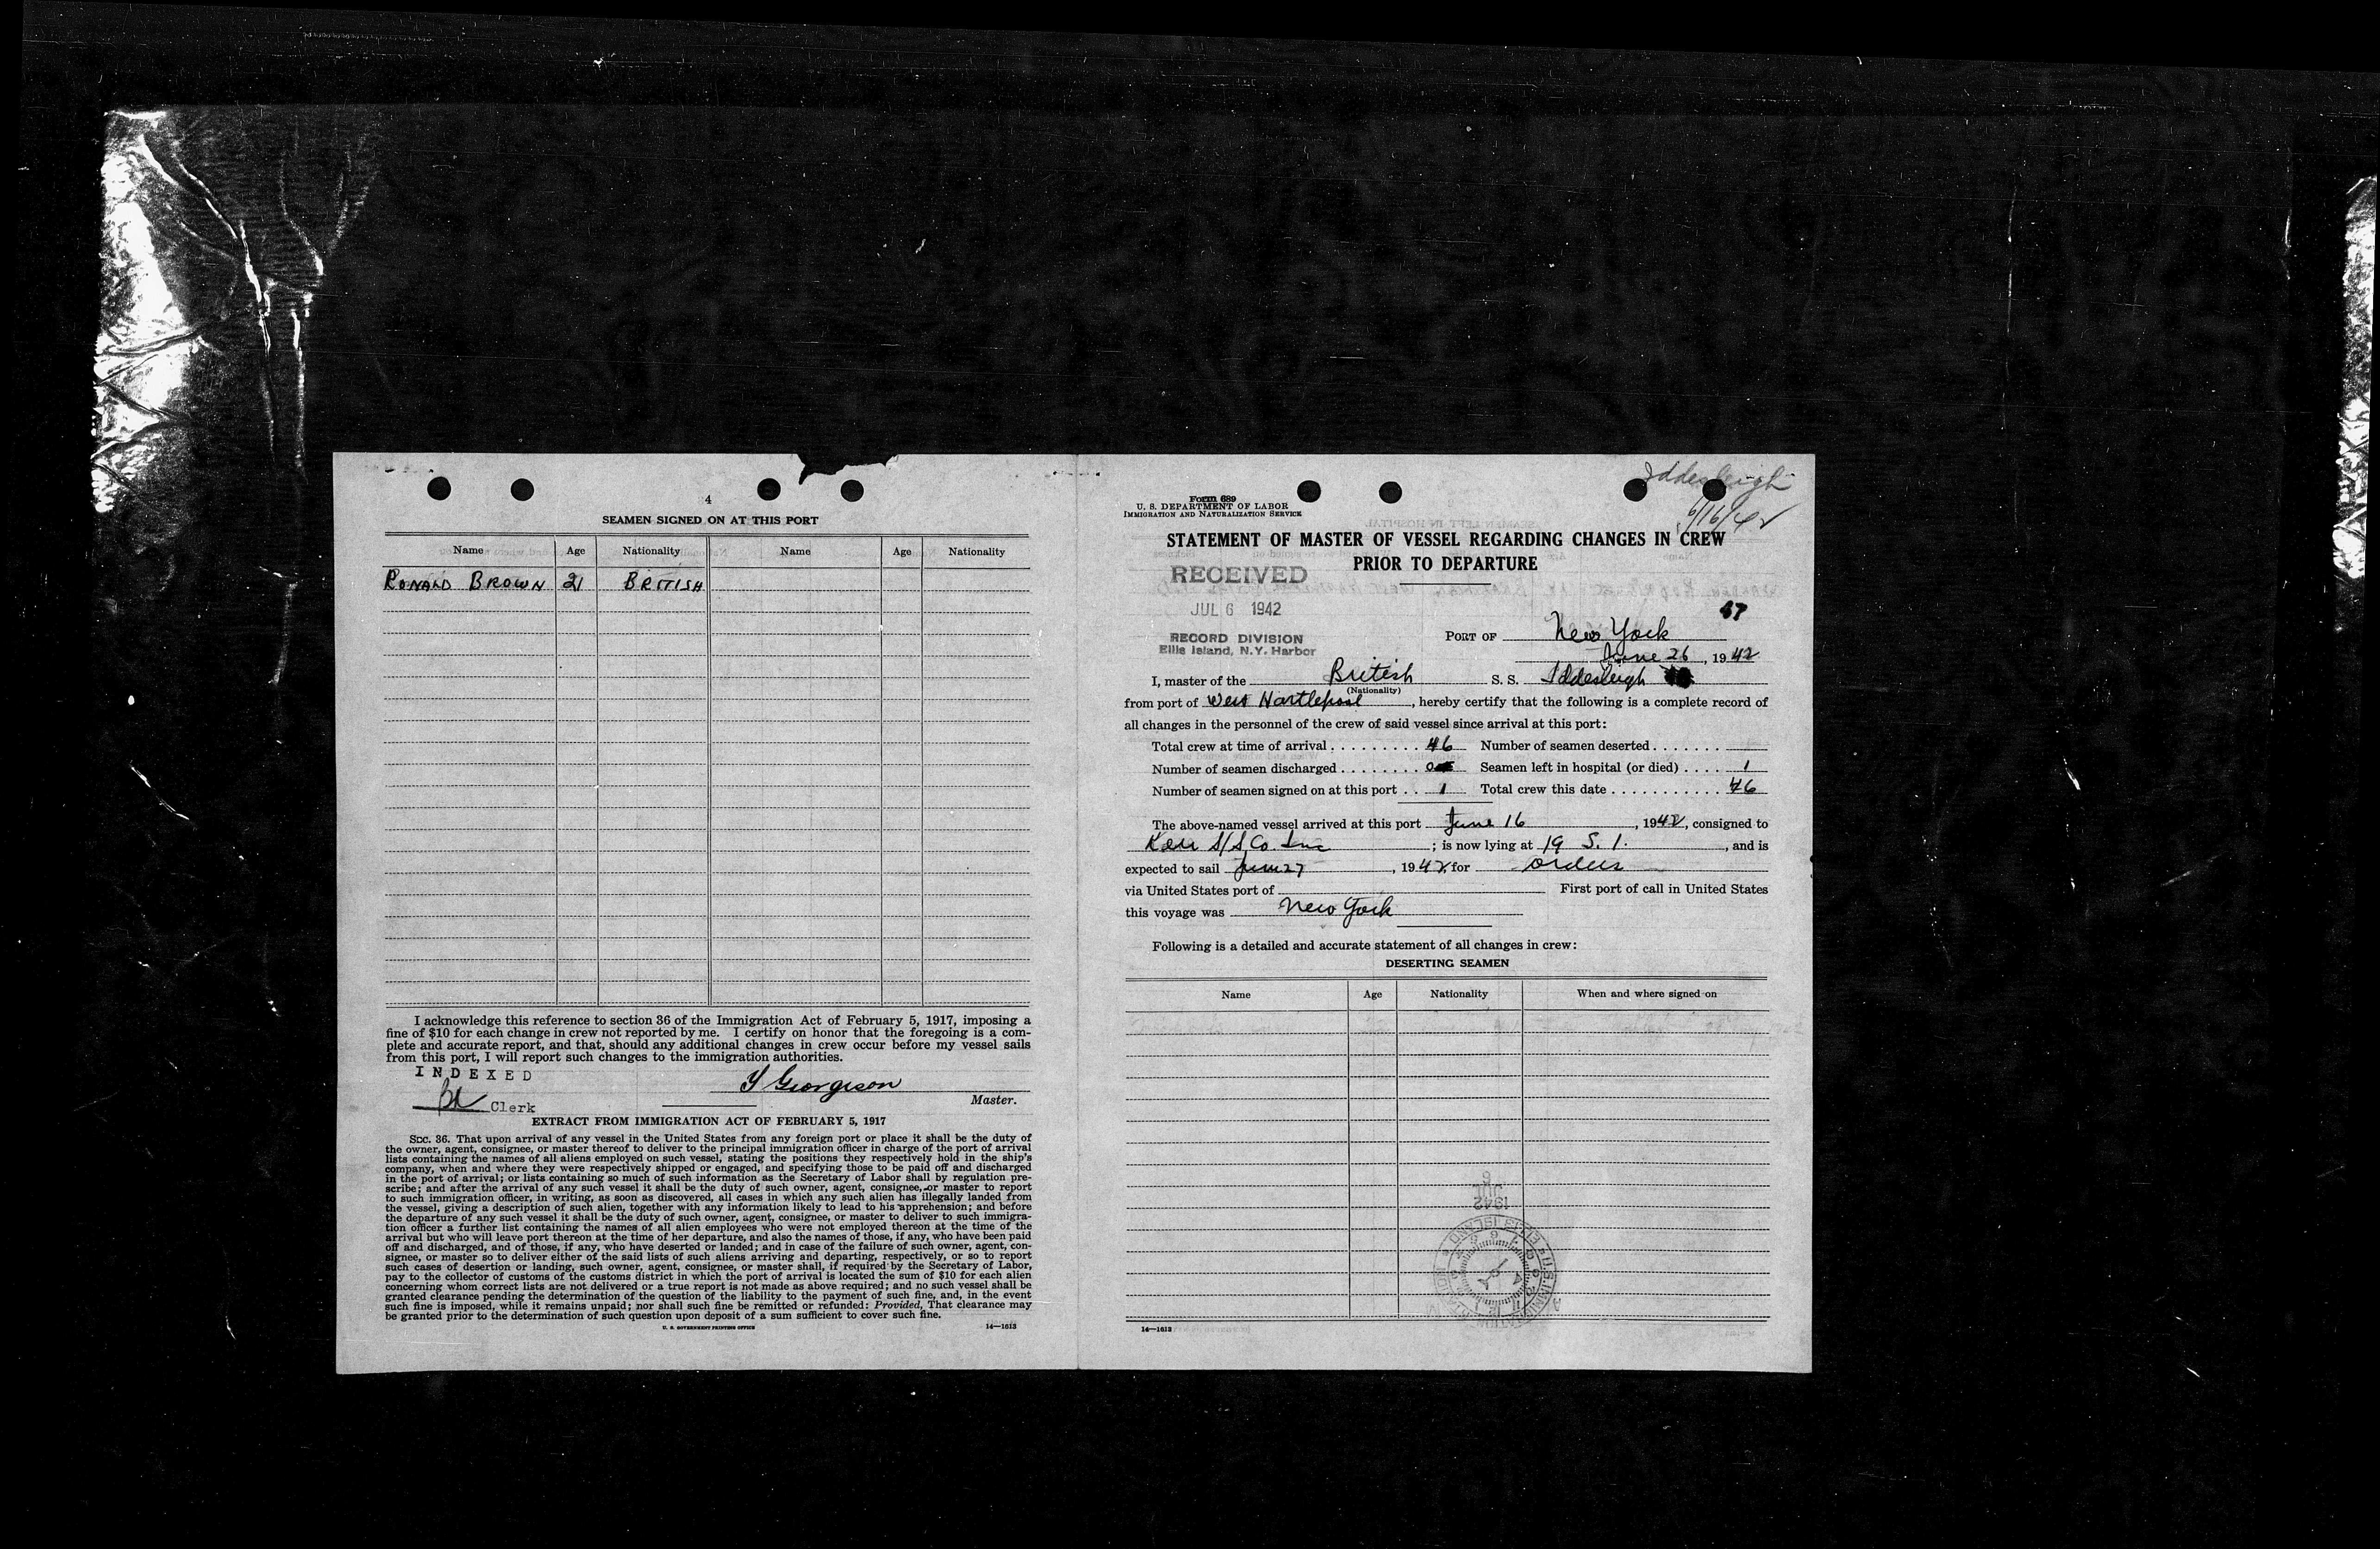 4
SEAMEN SIGNED ON AT THIS PORT
Name Age Nationality Name Age Nationality
RONALD BROWN 21 BRITISH
I acknowledge this reference to section 36 of the Immigration Act of February 5, 1917, imposing a
fine of $10 for each change in crew not reported by me. I certify on honor that the foregoing is a com-
plete and accurate report, and that, should any additional changes in crew occur before my vessel sails
from this port, I will report such changes to the immigration authorities.
INDEXED
Georgeson
Clerk
Master.
EXTRACT FROM IMMIGRATION ACT OF FEBRUARY 5, 1917
SEC. 36. That upon arrival of any vessel in the United States from any foreign port or place it shall be the duty of
the owner, agent, consignee, or master thereof to deliver to the principal immigration officer in charge of the port of arrival
lists containing the names of all aliens employed on such vessel, stating the positions they respectively hold in the ship's
company, when and where they were respectively shipped or engaged, and specifying those to be paid off and discharged
in the port of arrival; or lists containing so much of such information as the Secretary of Labor shall by regulation pre-
scribe; and after the arrival of any such vessel it shall be the duty of such owner, agent, consignee, or master to report
to such immigration officer, in writing, as soon as discovered, all cases in which any such alien has illegally landed from
the vessel, giving a description of such alien, together with any information likely to lead to his apprehension; and before
the departure of any such vessel it shall be the duty of such owner, agent, consignee, or master to deliver to such immigra-
tion officer a further list containing the names of all alien employees who were not employed thereon at the time of the
arrival but who will leave port thereon at the time of her departure, and also the names of those, if any, who have been paid
off and discharged, and of those, if any, who have deserted or landed; and in case of the failure of such owner, agent, con-
signee, or master so to deliver either of the said lists of such aliens arriving and departing, respectively, or so to report
such cases of desertion or landing, such owner, agent, consignee, or master shall, if required by the Secretary of Labor,
pay to the collector of customs of the customs district in which the port of arrival is located the sum of $10 for each alien
concerning whom correct lists are not delivered or a true report is not made as above required; and no such vessel shall be
granted clearance pending the determination of the question of the liability to the payment of such fine, and, in the event
such fine is imposed, while it remains unpaid; nor shall such fine be remitted or refunded: Provided, That clearance may
be granted prior to the determination of such question upon deposit of a sum sufficient to cover such fine.
U. S. GOVERNMENT PRINTING OFFICE 14—1613
Iddesleigh
6/16/42
Form 689
U. S. DEPARTMENT OF LABOR
IMMIGRATION AND NATURALIZATION SERVICE
STATEMENT OF MASTER OF VESSEL REGARDING CHANGES IN CREW
PRIOR TO DEPARTURE
RECEIVED
JUL 6 1942
RECORD DIVISION
Ellis Island, N.Y. Harbor
PORT OF New York
June 26, 1942
I, master of the British S. S. Iddesleigh
(Nationality)
from port of West Hartlepool, hereby certify that the following is a complete record of
all changes in the personnel of the crew of said vessel since arrival at this port:
Total crew at time of arrival . . . . . . . . . 46 Number of seamen deserted . . . . . . .
Number of seamen discharged . . . . . . . . 0 Seamen left in hospital (or died) . . . . 1
Number of seamen signed on at this port . . 1 Total crew this date . . . . . . . . . . . 46
The above-named vessel arrived at this port June 16, 1942, consigned to
Kerr S/S Co. Inc; is now lying at 19 S. I., and is
expected to sail June 27, 1942, for orders
via United States port of First port of call in United States
this voyage was New York
Following is a detailed and accurate statement of all changes in crew:
DESERTING SEAMEN
Name Age Nationality When and where signed on
14—1613